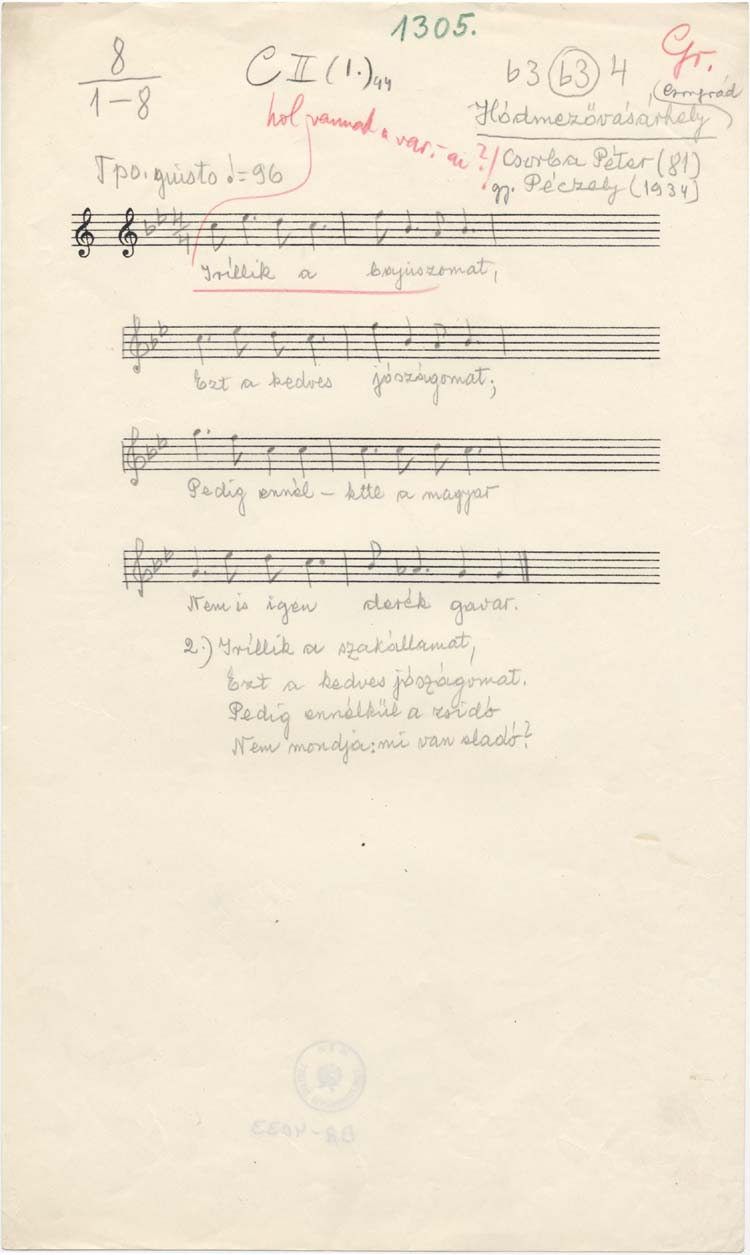 1305.
8
1-8
C II (1.)44
b3 b3 4
Gr.
(Csongrád)
Hódmezővásárhely
hol vannak a var.-ai?!
Csorba Péter (81)
gy. Péczely (1934)
Tpo. giusto ♩=96
4
4
Nyíllik a bajúszomat,
Ezt a kedves jószágomat;
Pedig ennél-kűl a magyar
Nem is igen derék gavar.
2.) Nyíllik a szakállamat,
Ezt a kedves jószágomat.
Pedig ennélkűl a zsidó
Nem mondja: mi van eladó?